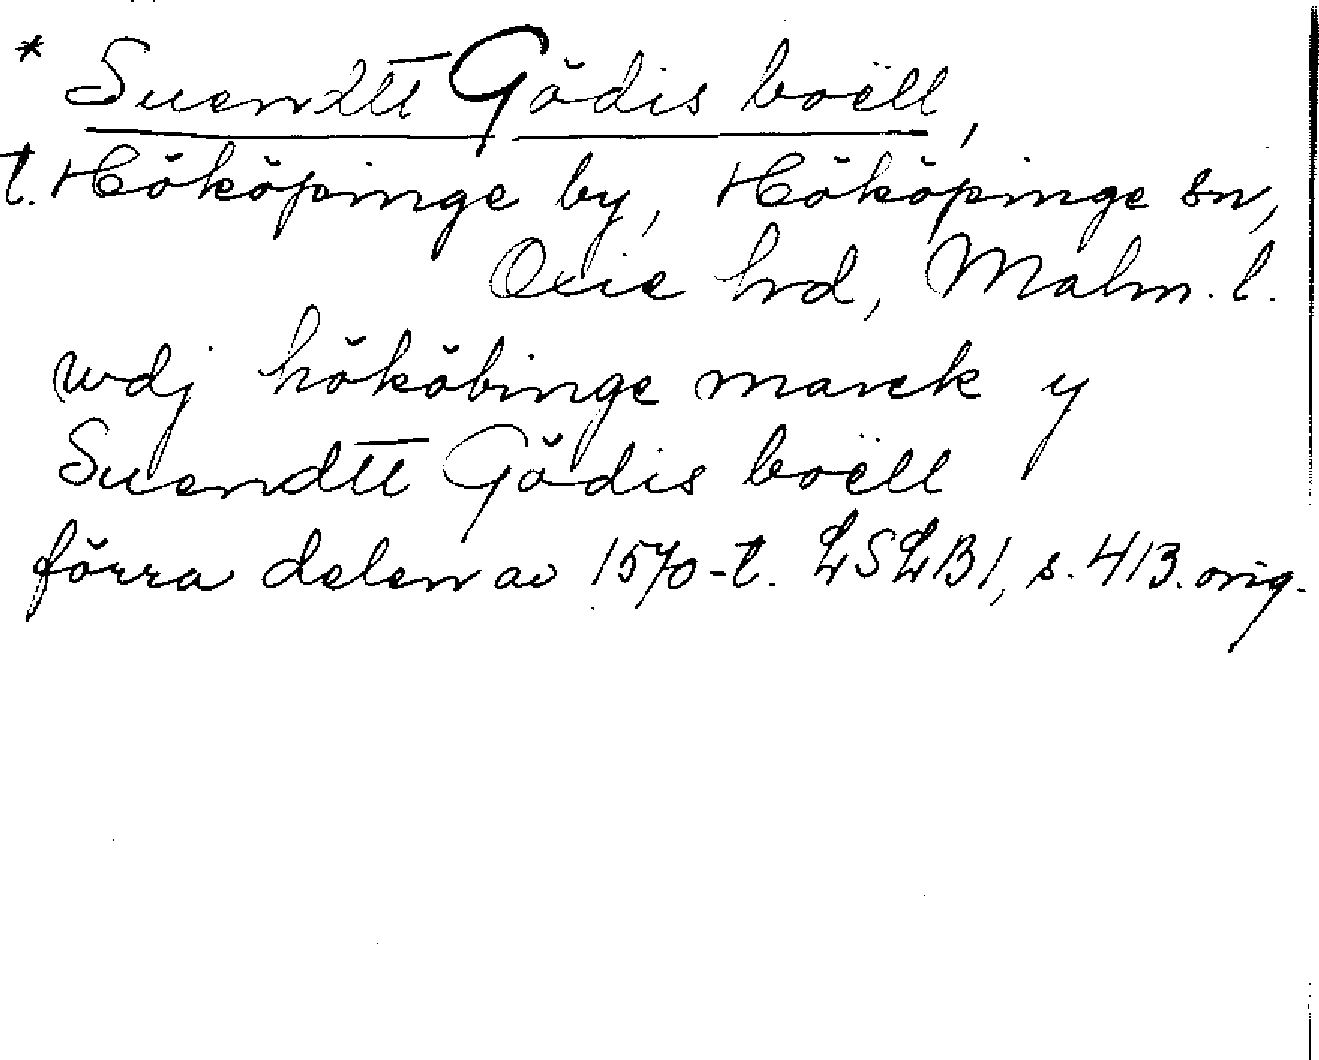 * Suendtt̅ Gödis boëll,
t. Hököpinge by, Hököpinge sn,
Oxie hrd, Malm. l.
wdj hököbinge marck y
Suendtt̅ Gödis boëll
förra delen av 1570-t. LSLB1, s. 413. orig.